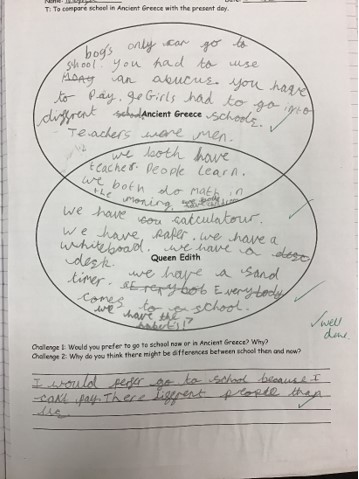 T: To compare school in Ancient Greece with the present day.
boy's only can go to
shool. you had to use
an abucus. you have
to Pay. Girls had to go into
diffrent Ancient Greece schools.
Teachers were men.
we both have
teacher. People learn.
we both do math in
the moning.
we have calculatour.
we have paper. we have a
whiteboard. we have a
desk. Queen Edith
we have a sand
timer. Every body
comes to a school.
we have the
well done.
Challenge 1: Would you prefer to go to school now or in Ancient Greece? Why?
Challenge 2: Why do you think there might be differences between school then and now?
I would go to school because I
cant pay. There diggrent people than
us